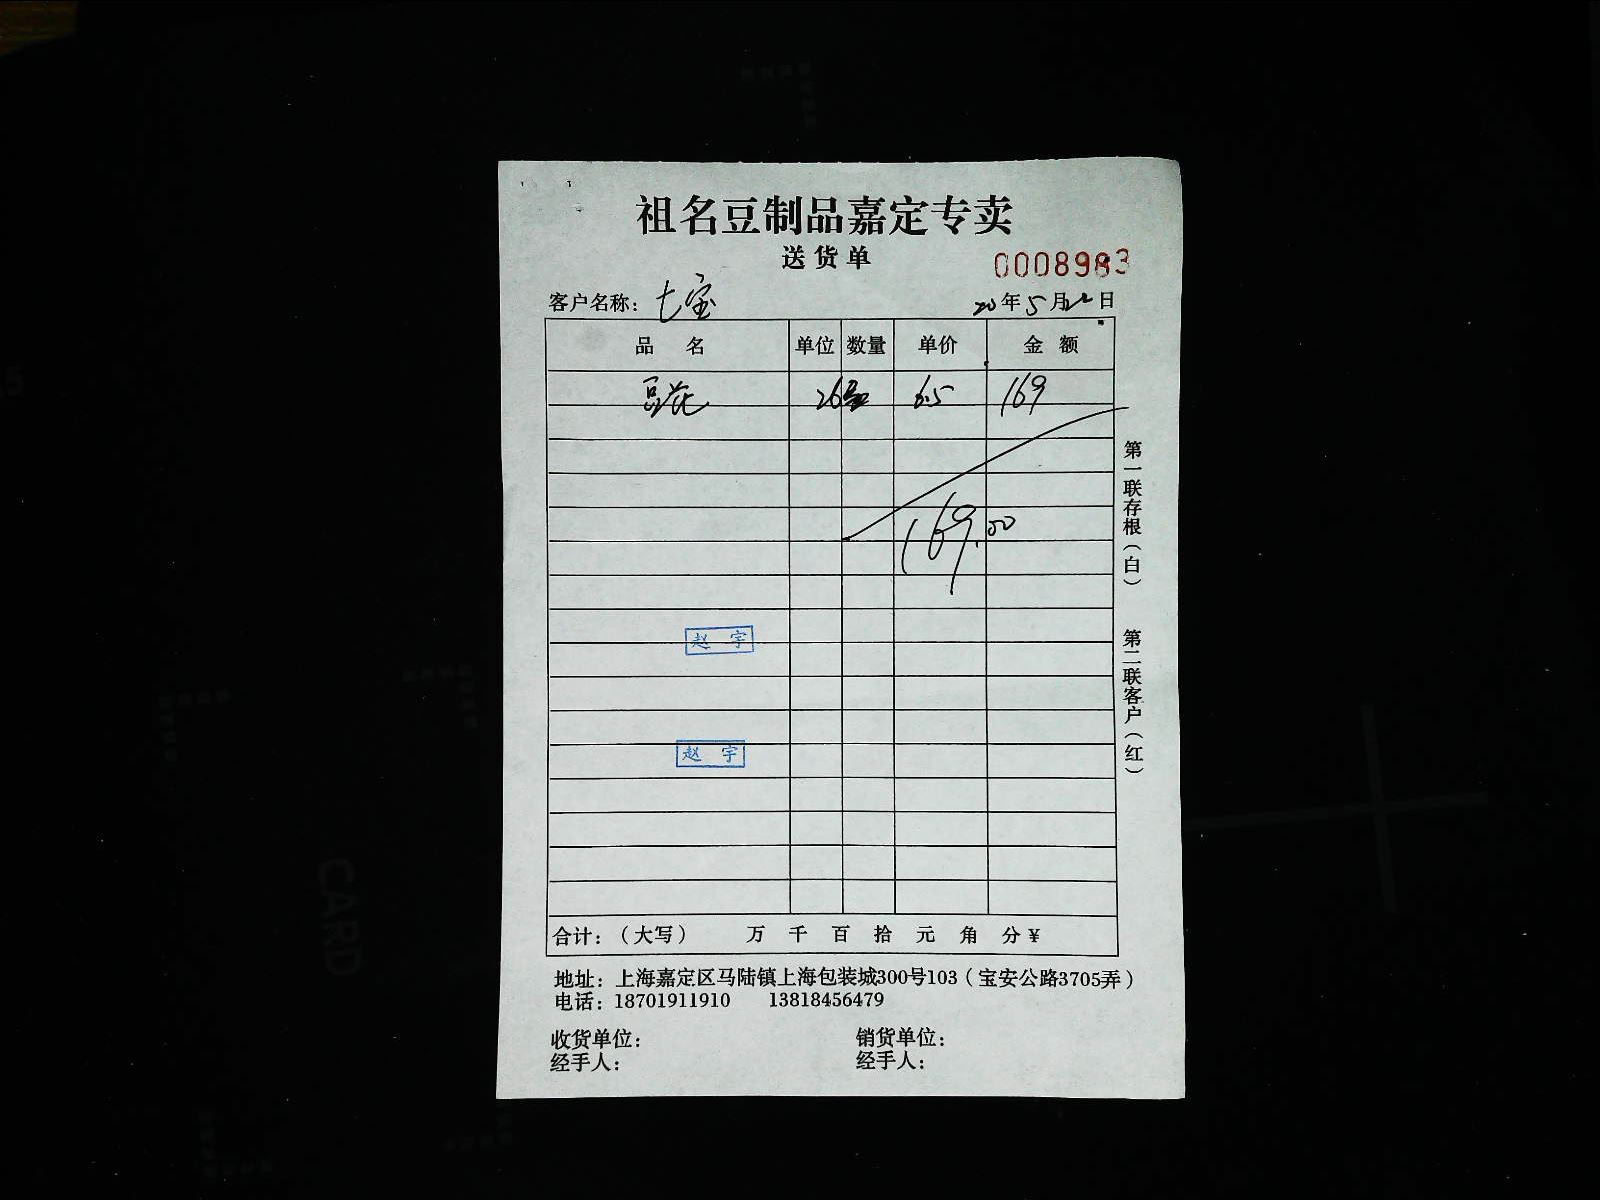 祖名豆制品嘉定专卖
送货单
0008983
客户名称：七宝 20年5月 日
品名 单位 数量 单价 金额
豆花 26 6.5 169
169.00
赵宇
赵宇
合计：（大写） 万 千 百 拾 元 角 分￥
地址：上海嘉定区马陆镇上海包装城300号103（宝安公路3705弄）
电话：18701911910 13818456479
收货单位： 销货单位：
经手人： 经手人：
第一联存根（白） 第二联客户（红）
CARD